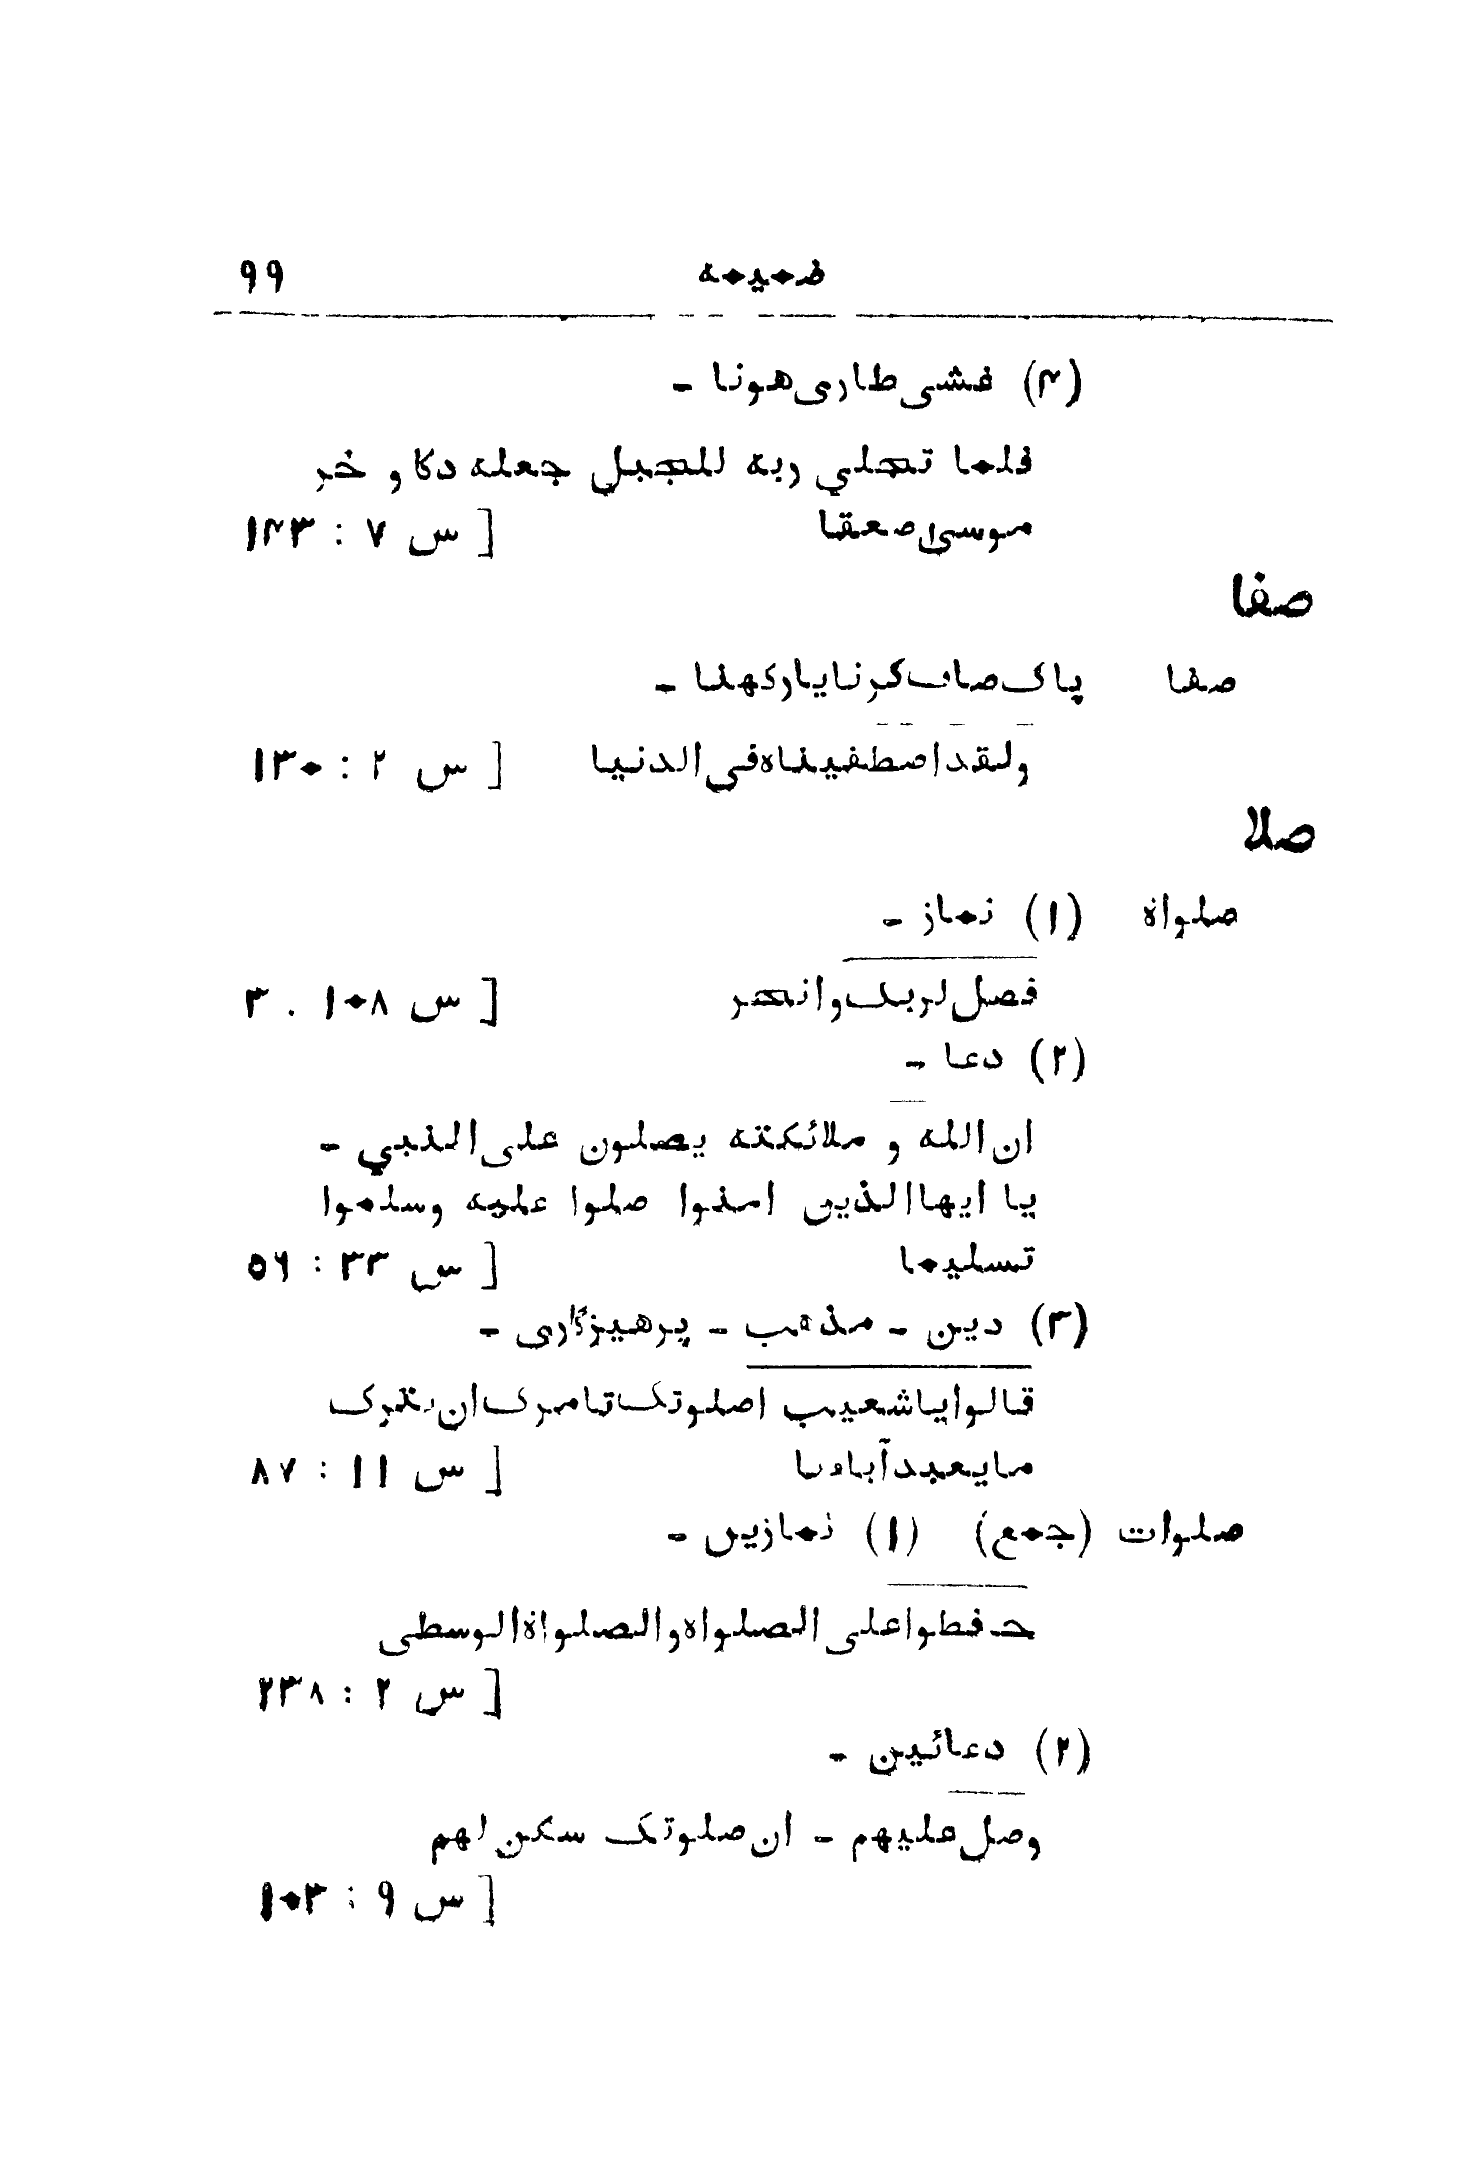 ضمیمه ۹۹
(۴) غشی طاری هونا -
فلما تجلی ربه للجبل جعله دکا و خر
موسیٰ صعقا [ س ۷ : ۱۴۳
صفا
صفا پاک صاف کرنا یا رکهنا -
ولقد اصطفیناه فی الدنیا [ س ۲ : ۱۳۰
صلا
صلواة (۱) نماز -
فصل لربک وانحر [ س ۱۰۸ . ۳
(۲) دعا -
ان الله و ملائکته یصلون علی النبي -
یا ایها الذین امنوا صلوا علیه وسلموا
تسلیما [ س ۳۳ : ۵۶
(۳) دین - مذهب - پرهیزگاری -
قالوا یا شعیب اصلوتک تامرک ان نترک
ما یعبد آباءنا [ س ۱۱ : ۸۷
صلوات (جمع) (۱) نمازیں -
حفطوا علی الصلواه والصلواة الوسطی
[ س ۲ : ۲۳۸
(۲) دعائین -
وصل علیهم - ان صلوتک سکن لهم
[ س ۹ : ۱۰۳